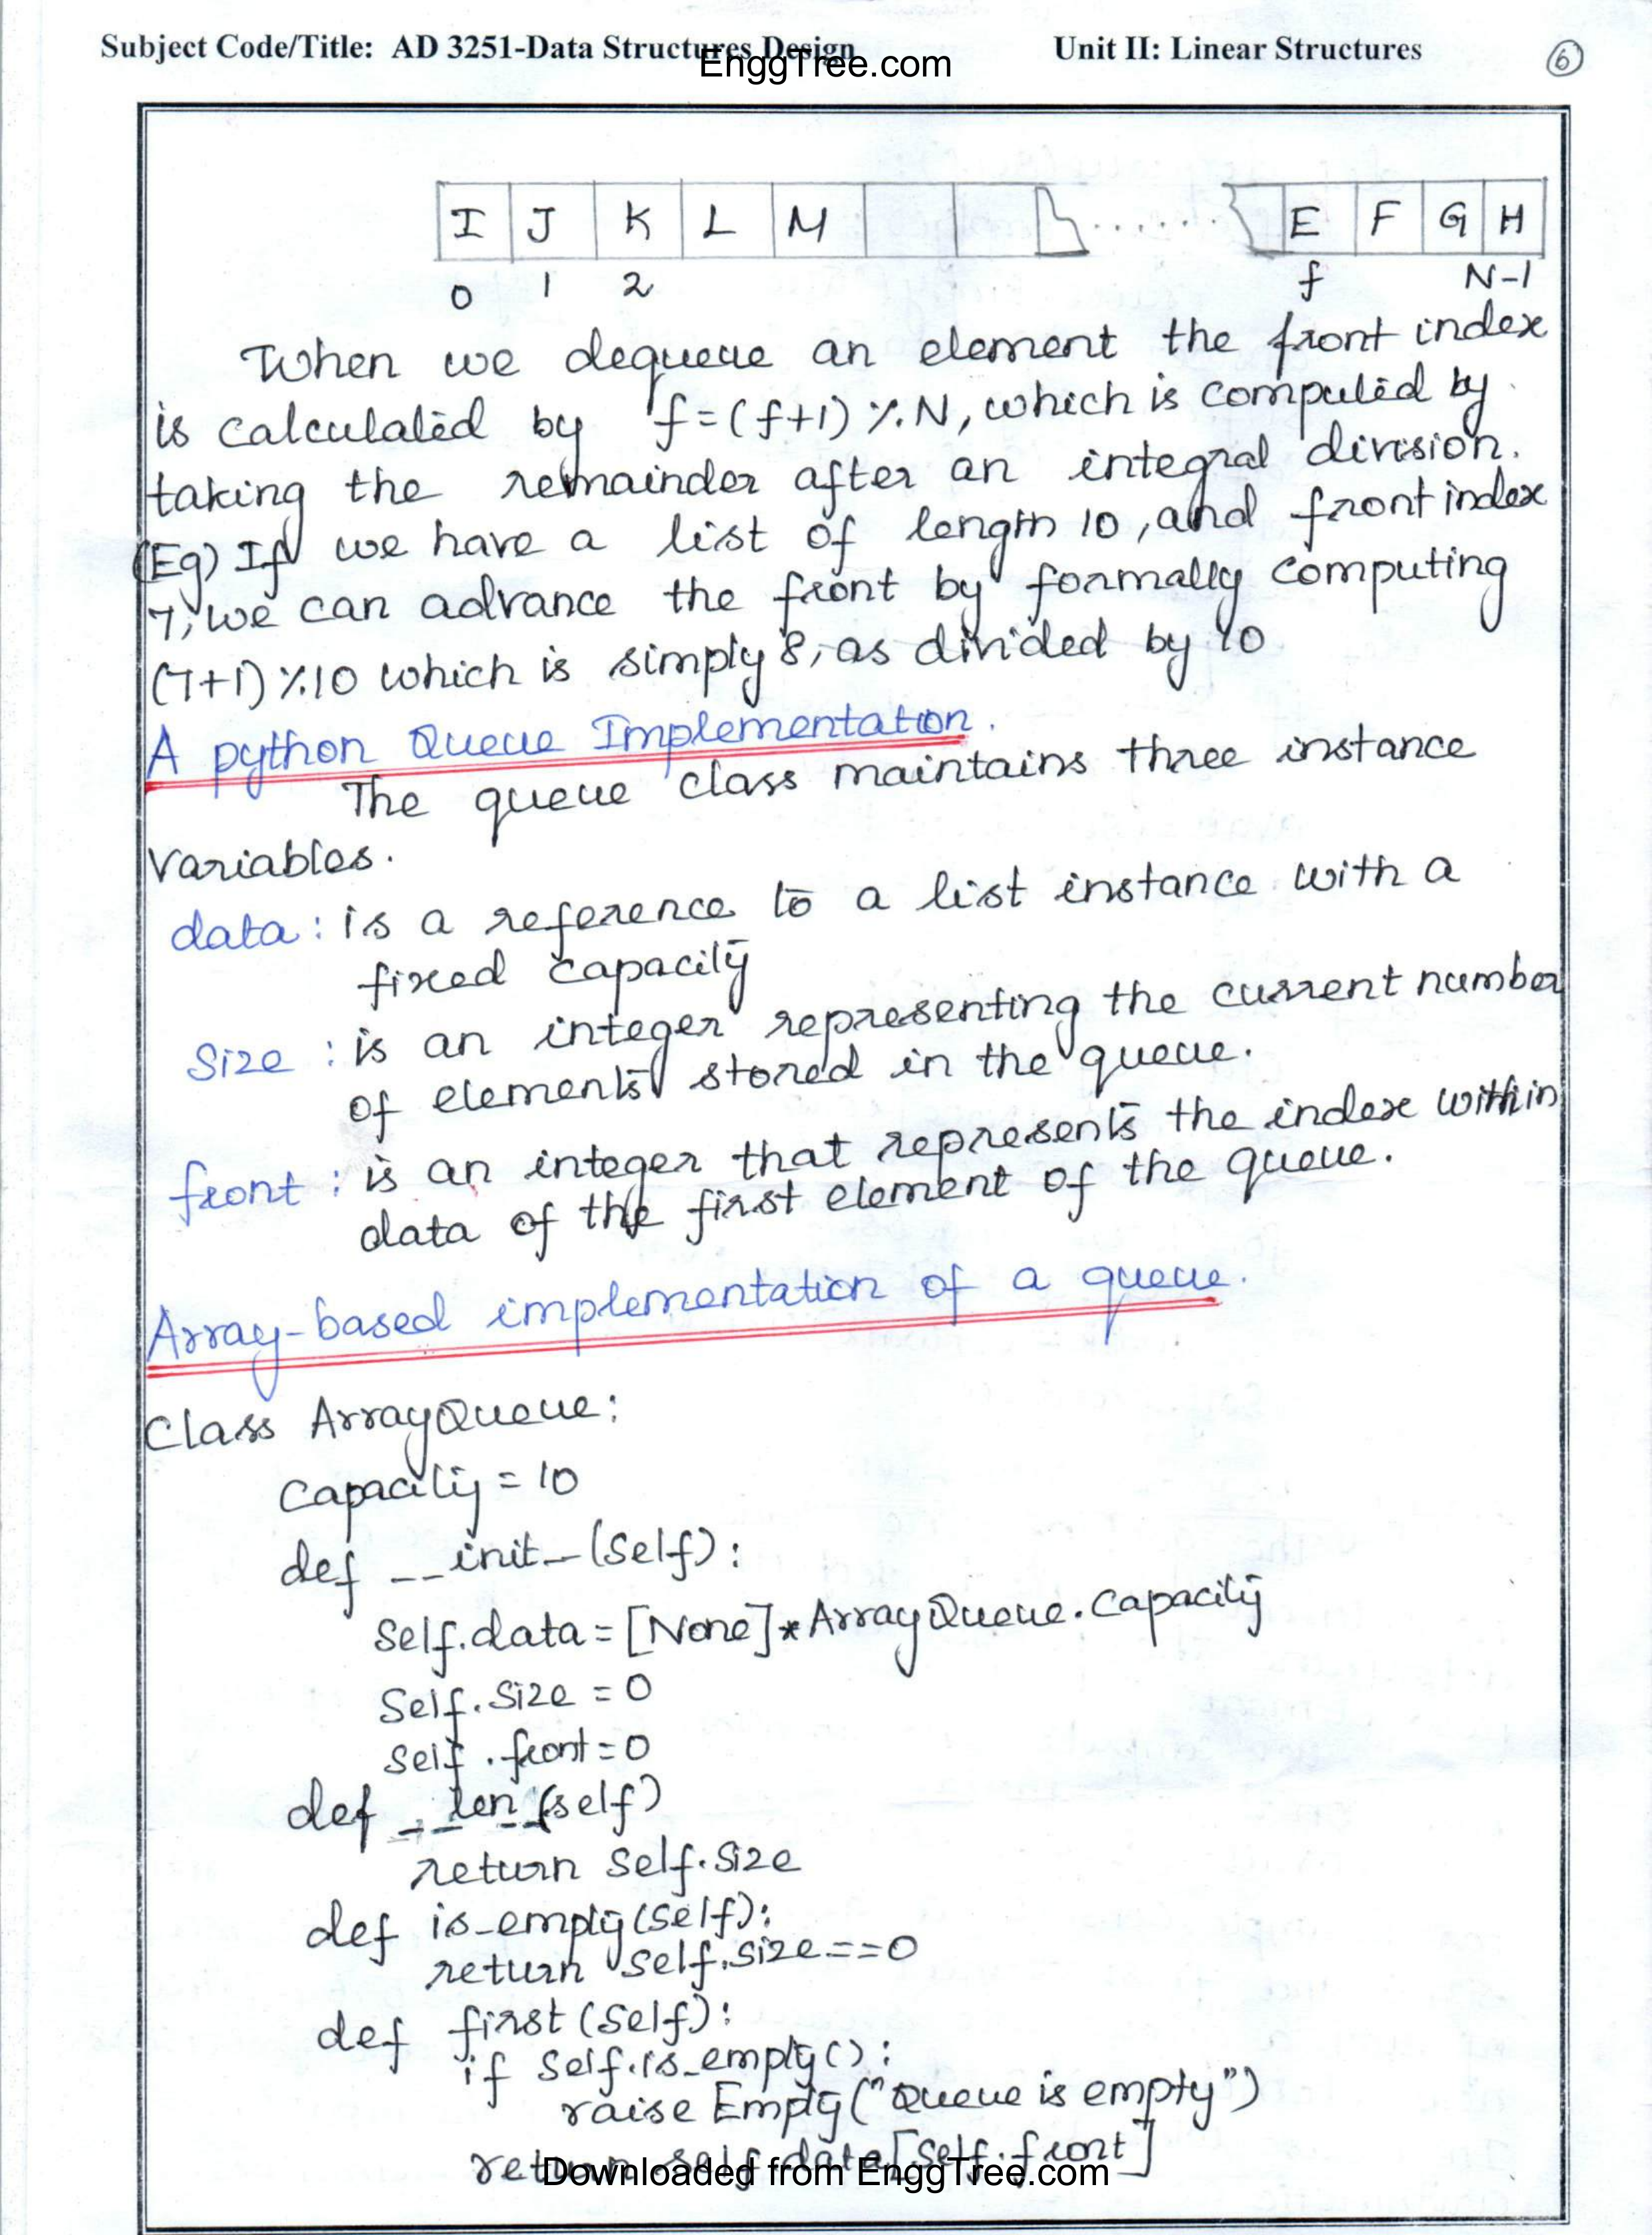 Subject Code/Title: AD 3251-Data Structures Design Unit II: Linear Structures 6
EnggTree.com
I J K L M ....... E F G H
0 1 2 f N-1
When we dequeue an element the front index
is calculated by f=(f+1) % N, which is computed by
taking the remainder after an integral division.
(Eg) If we have a list of length 10, and front index
7, we can advance the front by formally computing
(7+1) % 10 which is simply 8, as divided by 10
A python Queue Implementation.
The queue class maintains three instance
Variables.
data : is a reference to a list instance with a
fixed capacity
Size : is an integer representing the current number
of elements stored in the queue.
front : is an integer that represents the index within
data of the first element of the queue.
Array-based implementation of a queue.
Class ArrayQueue:
Capacity = 10
def __init_(Self):
Self.data = [None]*ArrayQueue.Capacity
Self.Size = 0
Self.front=0
def __len__(self)
return Self.Size
def is_empty(Self):
return Self.Size==0
def first(Self):
if Self.is_empty():
raise Empty("Queue is empty")
return self.data[Self.front]
Downloaded from EnggTree.com